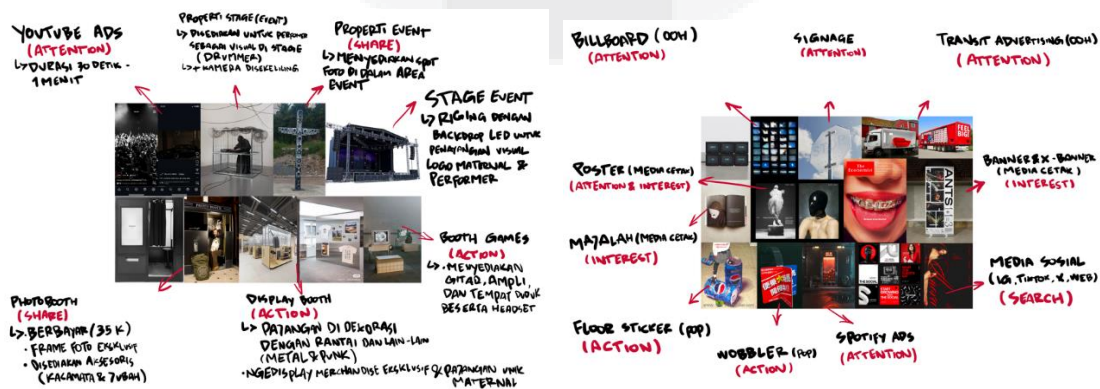 YOUTUBE ADS
(ATTENTION)
↳ DURASI 30 DETIK -
1 MENIT
PROPERTI STAGE (EVENT)
↳ DISEDIAKAN UNTUK PERFORMER
SEBAGAI VISUAL DI STAGE
(DRUMMER)
↳ + KAMERA DISEKELILING
PROPERTI EVENT
(SHARE)
↳ MENYEDIAKAN SPOT
FOTO DI DALAM AREA
EVENT
STAGE EVENT
↳ RIGING DENGAN
BACKDROP LED UNTUK
PENAYANGAN VISUAL
LOGO MATERNAL &
PERFORMER
BOOTH GAMES
(ACTION)
↳ • MENYEDIAKAN
GITAR, AMPLI,
DAN TEMPAT DUDUK
BESERTA HEADSET
PHOTOBOOTH
(SHARE)
↳ • BERBAYAR (35K)
• FRAME FOTO EKSKLUSIF
• DISEDIAKAN AKSESORIS
(KACAMATA & JUBAH)
DISPLAY BOOTH
(ACTION)
↳ PAJANGAN DI DEKORASI
DENGAN RANTAI DAN LAIN-LAIN
(METAL & PUNK)
• NGEDISPLAY MERCHANDISE EKSKLUSIF & PAJANGAN UNIK
MATERNAL
BILLBOARD (OOH)
(ATTENTION)
SIGNAGE
(ATTENTION)
TRANSIT ADVERTISING (OOH)
(ATTENTION)
POSTER (MEDIA CETAK)
(ATTENTION & INTEREST)
MAJALAH (MEDIA CETAK)
(INTEREST)
BANNER & X-BANNER
(MEDIA CETAK)
(INTEREST)
MEDIA SOSIAL
(IG, TIKTOK, X, WEB)
(SEARCH)
FLOOR STICKER (POP)
(ACTION)
WOBBLER (POP)
(ACTION)
SPOTIFY ADS
(ATTENTION)
FEEL
BIG!
The Economist
ANTS
pepsi